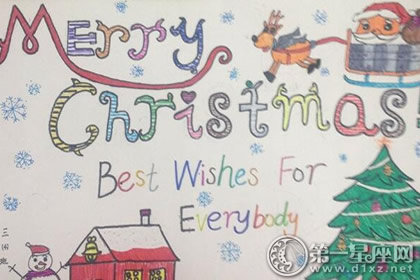 Merry
Christmas
Best Wishes For
Everybody
三
班
第一星座网
www.d1xz.net